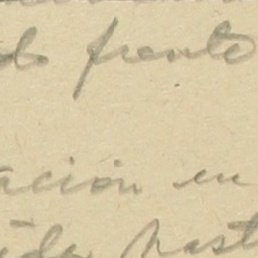 do frente
ación en
ida hast